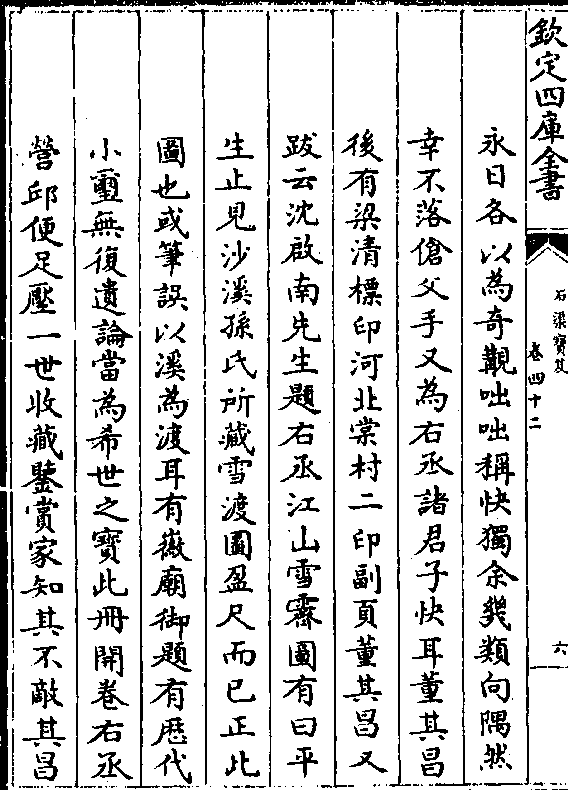 欽定四庫全書
石渠寶笈
卷四十二
六
永日各以為奇觀咄咄稱快獨余幾類向隅然
幸不落傖父手又為右丞諸君子快耳董其昌
後有梁清標印河北棠村二印副頁董其昌又
跋云沈啟南先生題右丞江山雪霽圖有曰平
生止見沙溪孫氏所藏雪渡圖盈尺而已正此
圖也或筆誤以溪為渡耳有徽廟御題有歴代
小璽無復遺論當為希世之寶此冊開卷右丞
營邱便足壓一世收藏鑒賞家知其不敵其昌